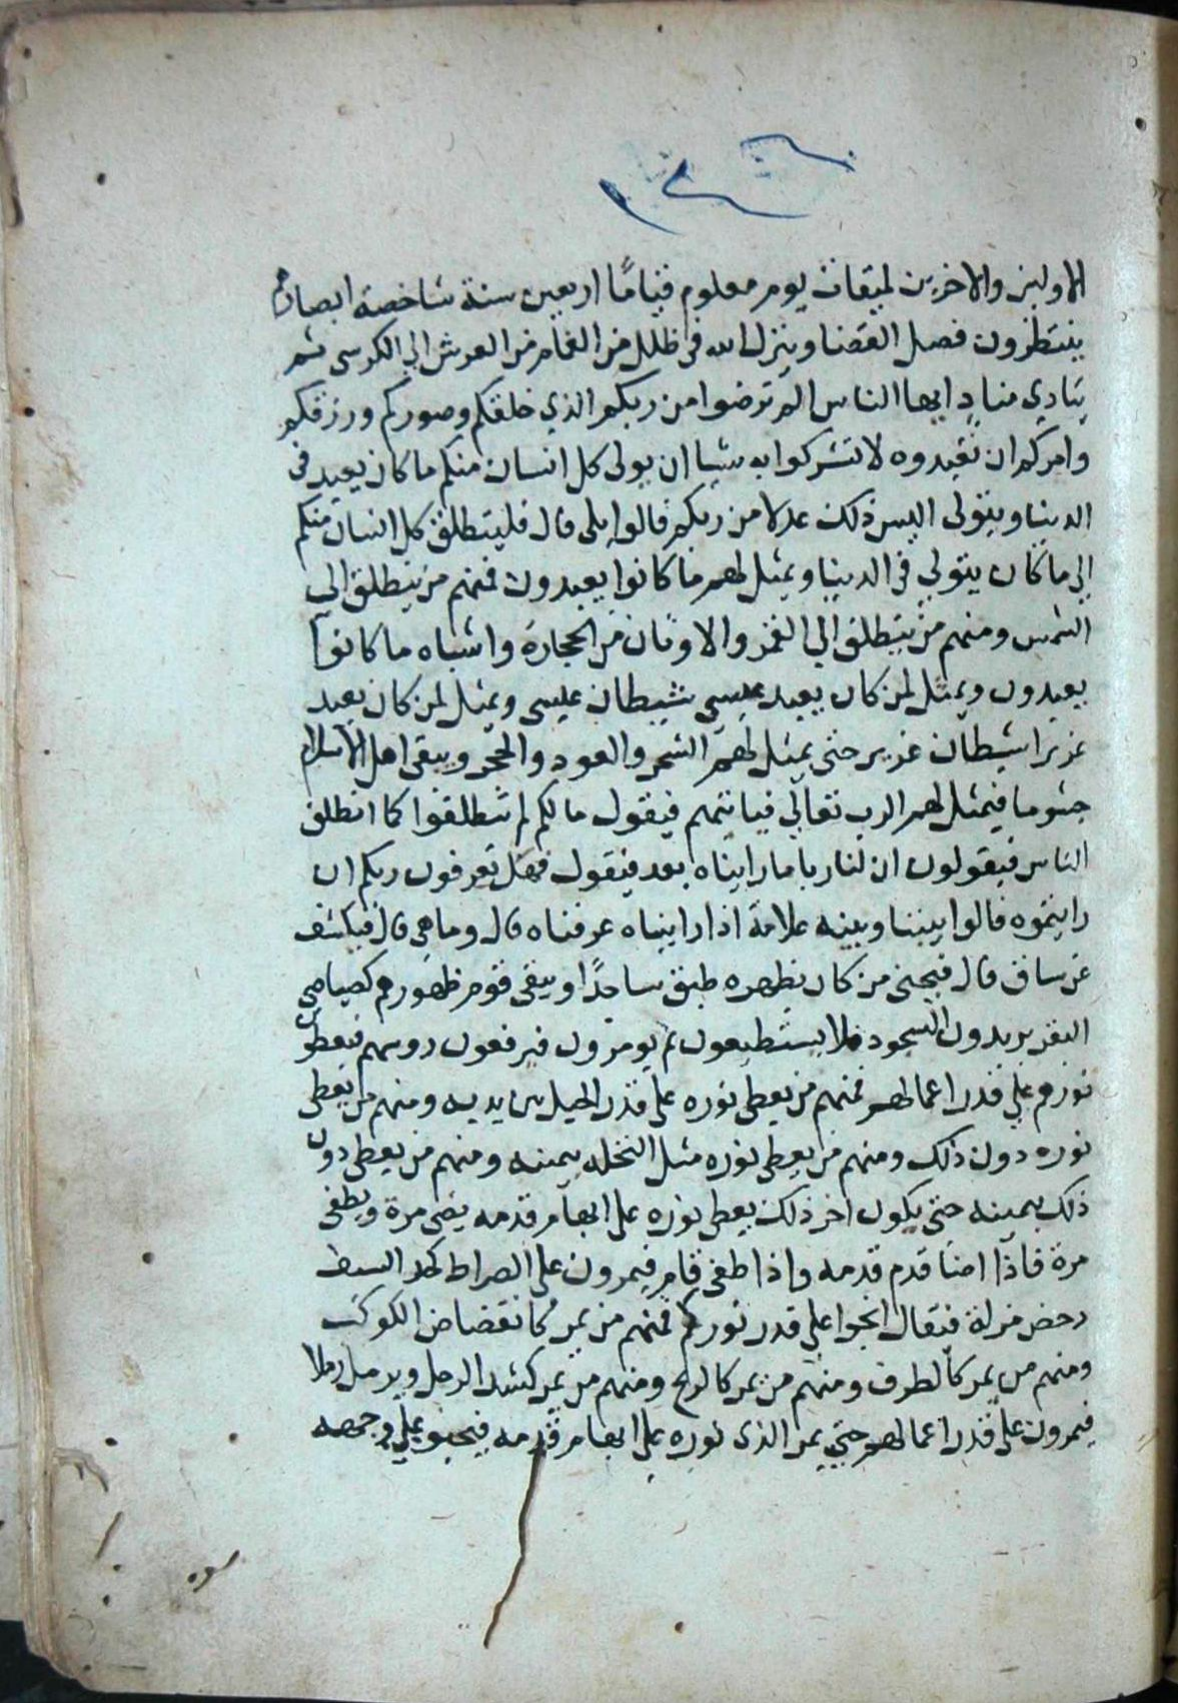 الاولين والاخرين لميقات يوم معلوم قيامًا اربعين سنة شاخصة ابصارهم
ينتظرون فصل القضا وينزل الله في ظلل من الغمام من العرش الي الكرسي ثم
ينادي منادٍ ايها الناس الم ترضوا من ربكم الذي خلقكم وصوركم ورزقكم
وامركم ان تعبدوه لا تشركوا به شيا ان يولى كل انسان منكم ما كان يعبد في
الدينا ويتولى اليس ذلك عدلا من ربكم قالوا بلى قال فلينطلق كل انسان منكم
الي ما كان يتولي في الدنيا ويمثل لهم ما كانوا يعبدون فمنهم من ينطلق الي
الشمس ومنهم من ينطلق الي القمر والاوثان من الحجارة واشباه ما كانوا
يعبدون ويمثل لمن كان يعبد عيسي شيطان عيسى ويمثل لمن كان يعبد
عزيرا شيطان عزير حتى يمثل لهم الشجر والعود والحجر ويبقى اهل الاسلام
جثوما فيمثل لهم الرب تعالي فياتيهم فيقول ما لكم لم تنطلقوا كما انطلق
الناس فيقولون ان لنا ربا ما رايناه بعد فيقول فهل تعرفون ربكم ان
رايتموه قالوا بيننا وبينه علامة اذا رايناه عرفناه قال وما هي قال فيكشف
عن ساق قال فيحني من كان بظهره طبق ساجدًا ويبقى قوم ظهورهم كصياصي
البقر يريدون السجود فلا يستطيعون ثم يومرون فيرفعون روسهم فيعطون
نورهم علي قدر اعمالهم فمنهم من يعطي نوره على قدر الجبل بين يديه ومنهم من يعطى
نوره دون ذلك ومنهم من يعطي نوره مثل النخله بيمينه ومنهم من يعطى دون
ذلك بيمينه حتى يكون اخر ذلك يعطى نوره على ابهام قدمه يضى مرة ويطفى
مرة فاذا اضا قدم قدمه واذا طفى قام فيمرون على الصراط كحد السيف
دحض مزلة فيقال انجوا علي قدر نوركم فمنهم من يمر كانقضاض الكوكب
ومنهم من يمر كالطرف ومنهم من يمر كالريح ومنهم من يمر كشد الرجل ويرمل رملا
فيمرون على قدر اعمالهم حتي يمر الذي نوره علي ابهام قدمه فيحبو علي وجهه